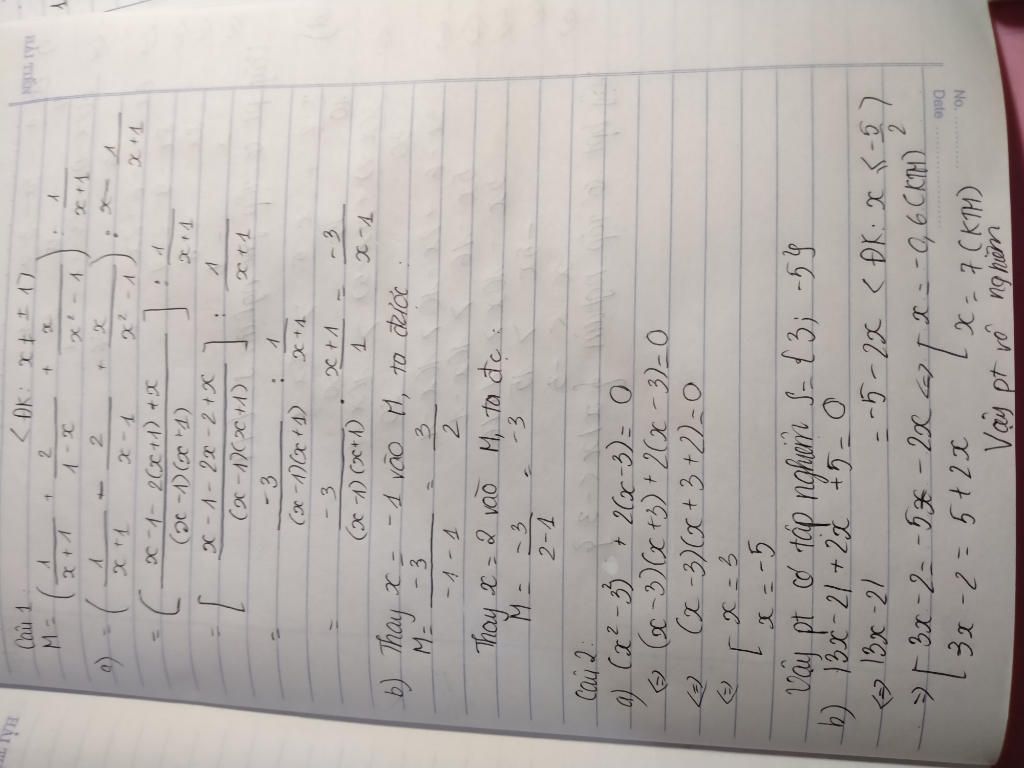 HẢI TIẾN
No.
Date
Câu 1
M = (1/(x+1) + 2/(1-x) + x/(x²-1)) : 1/(x+1) < ĐK: x ≠ ± 1>
a) = (1/(x+1) - 2/(x-1) + x/(x²-1)) : 1/(x+1)
= [(x-1-2(x+1)+x)/((x-1)(x+1))] : 1/(x+1)
= [(x-1-2x-2+x)/((x-1)(x+1))] : 1/(x+1)
= -3/((x-1)(x+1)) : 1/(x+1)
= -3/((x-1)(x+1)) . (x+1)/1 = -3/(x-1)
b) Thay x = -1 vào M, ta được
M = -3/(-1-1) = 3/2
Thay x = 2 vào M, ta đc:
M = -3/(2-1) = -3
Câu 2:
a) (x²-3²) + 2(x-3) = 0
<=> (x-3)(x+3) + 2(x-3) = 0
<=> (x-3)(x+3+2) = 0
<=> [ x = 3
[ x = -5
Vậy pt có tập nghiệm S = {3; -5}
b) |3x-2| + 2x + 5 = 0
<=> |3x-2| = -5 - 2x < ĐK: x ≤ -5/2>
=> [ 3x-2 = -5 - 2x <=> [ x = -0,6 (KTH)
[ 3x-2 = 5+2x [ x = 7 (KTH)
Vậy pt vô nghiệm